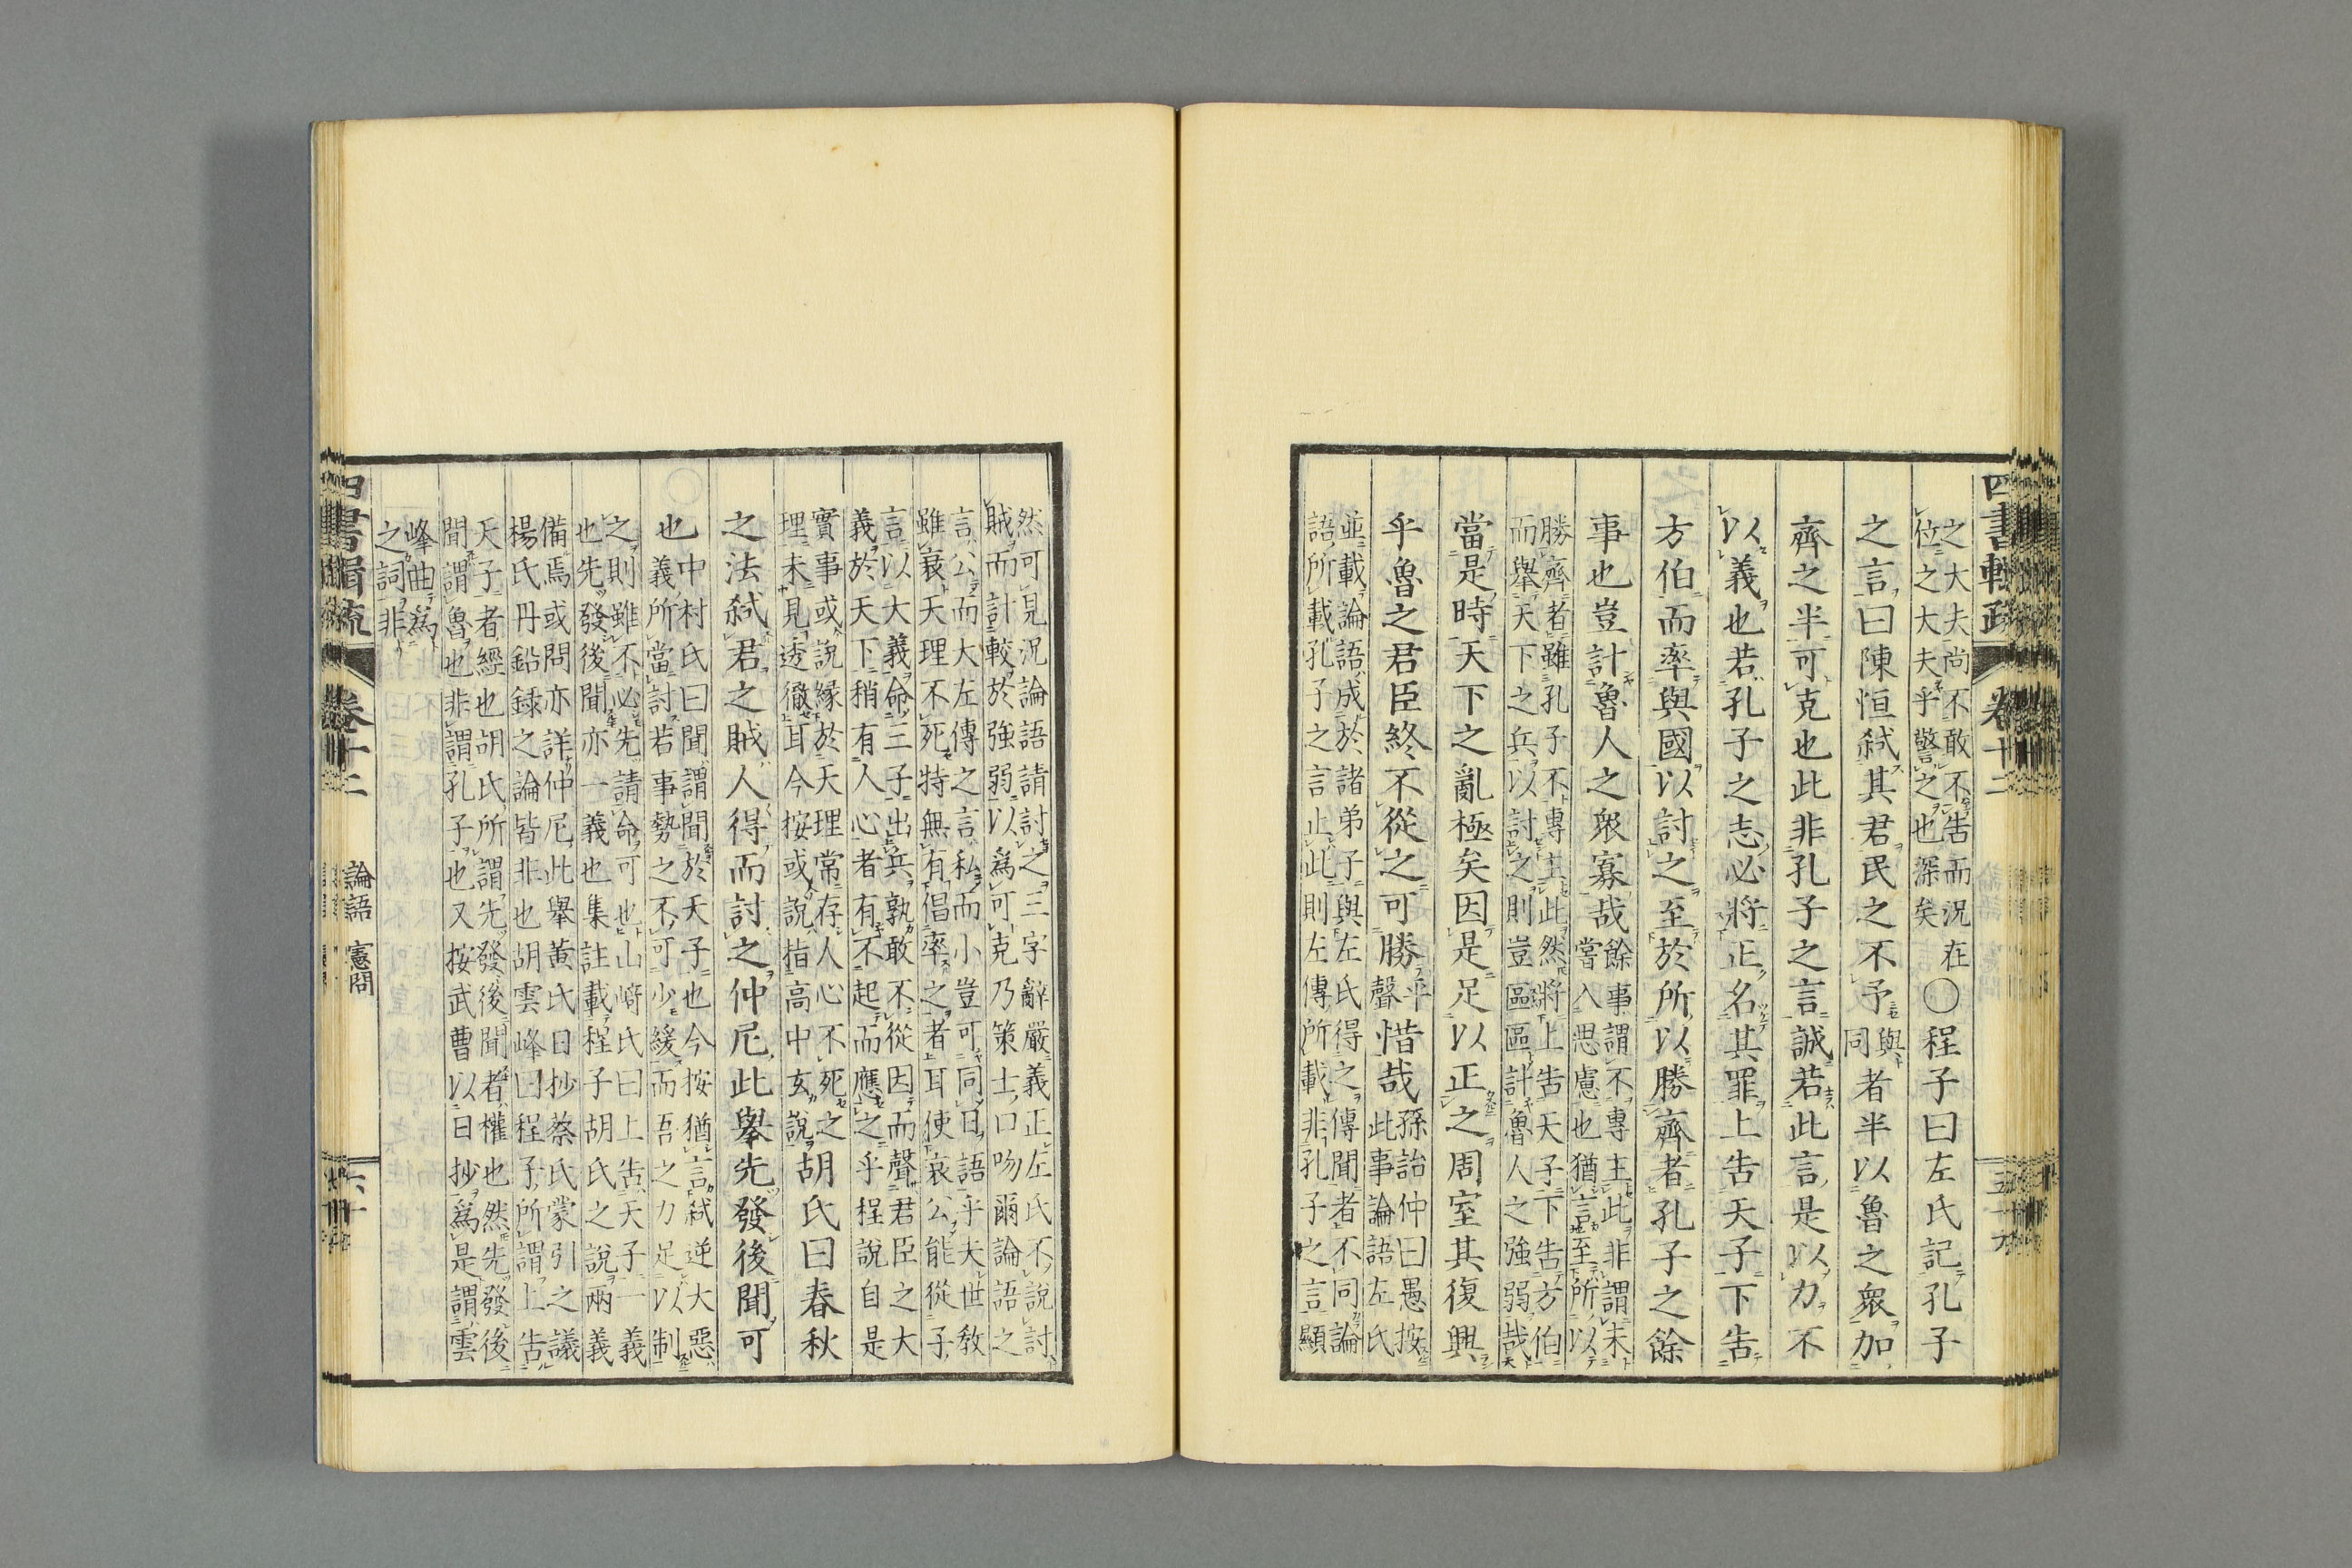 之大夫尚不敢不告而況在
位之大夫乎警之也深矣
〇程子曰左氏記孔子
之言曰陳恒弑其君民之不予與同者半以魯之衆加
齊之半可克也此非孔子之言誠若此言是以力不
以義也若孔子之志必將正名其罪上告天子下告
方伯而率與國以討之至於所以勝齊者孔子之餘
事也豈計魯人之衆寡哉
餘事謂不專主此非謂未
嘗入思慮也猶言至所以
勝齊者雖孔子不專主此然將上告天子下告方伯
而舉天下之兵以討之則豈區區計魯人之強弱哉
當是時天下之亂極矣因是足以正之周室其復興
乎魯之君臣終不從之可勝平聲惜哉
孫詒仲曰愚按
此事論語左氏
並載論語成於諸弟子與左氏得之傳聞者不同論
語所載孔子之言止此則左傳所載非孔子之言顯
然可見況論語請討之三字辭嚴義正左氏不說討
賊而計較於強弱以爲可克乃策士口吻爾論語之
言公而大左傳之言私而小豈可同日語乎夫世敎
雖衰天理不死特無有倡率之者耳使哀公能從子
言以大義命三子出兵孰敢不從因而聲君臣之大
義於天下稍有人心者有不起而應之乎程說自是
實事或說緣於天理常存人心不死之
理未見透徹耳今按或說指高中玄說
胡氏曰春秋
之法弑君之賊人得而討之仲尼此舉先發後聞可
也
中村氏曰聞謂聞於天子也今按猶言弑逆大惡
義所當討若事勢之不可少緩而吾之力足以制
之則雖不必先請命可也山﨑氏曰上告天子一義
也先發後聞亦一義也集註載程子胡氏之說兩義
備焉或問亦詳仲尼此舉黃氏日抄蔡氏蒙引之議
楊氏丹鉛録之論皆非也胡雲峰曰程子所謂上告
天子者經也胡氏所謂先發後聞者權也然先發後
聞謂魯也非謂孔子也又按武曹以日抄爲是謂雲
峰曲爲
之詞非
四書輯疏 卷十二 論語 憲問